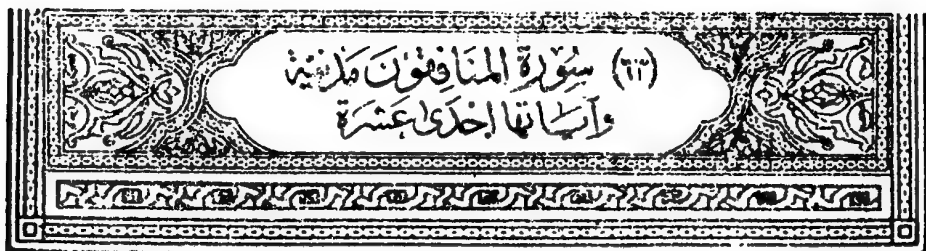 (٦٣) سُورَةُ المنَافِقُونَ مَدَنِيَّة
وَآيَاتهَا إحْدَى عَشَرَة